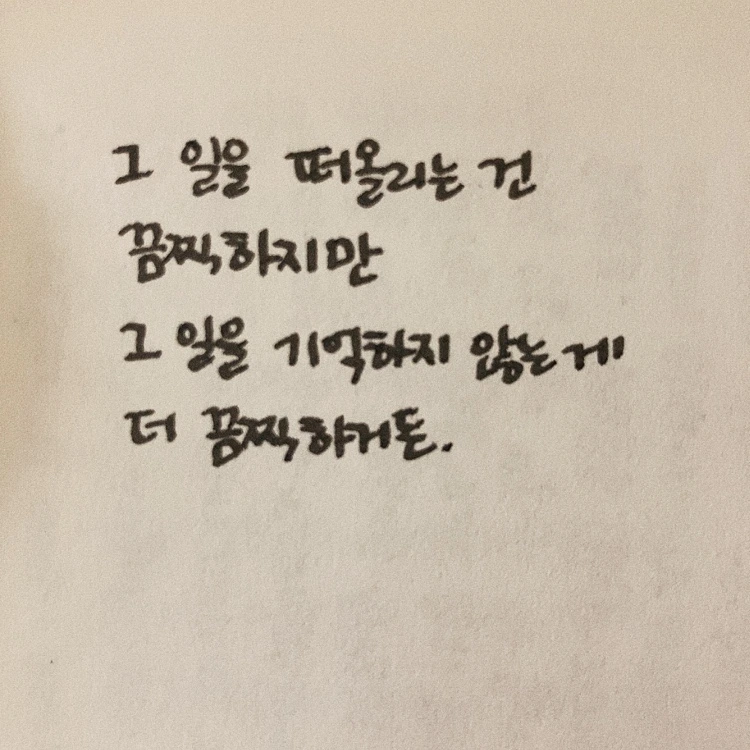 그 일을 떠올리는 건
끔찍하지만
그 일을 기억하지 않는 게
더 끔찍하거든.